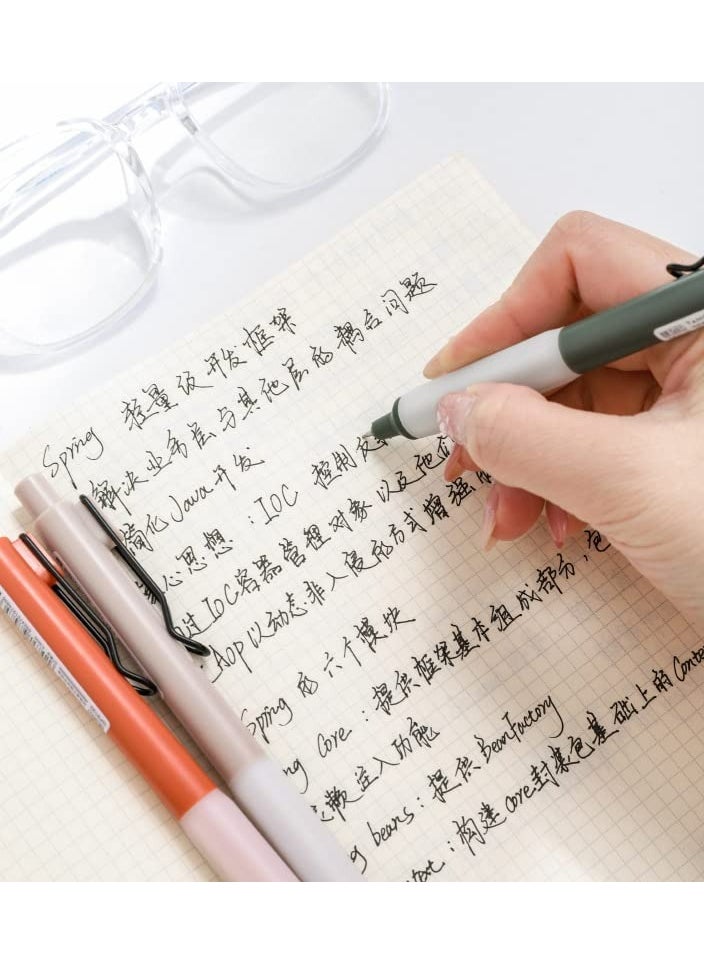 Spring 轻量级开发框架
解决业务层与其他层的耦合问题
简化Java开发
心思想：IOC 控制反
过IOC容器管理对象以及他们
AOP以动态非入侵的方式增强
Spring 的六个模块
ng Core：提供框架基本组成部分，包
依赖注入功能
g beans：提供BeanFactory
text：构建Core封装包基础上的Conte